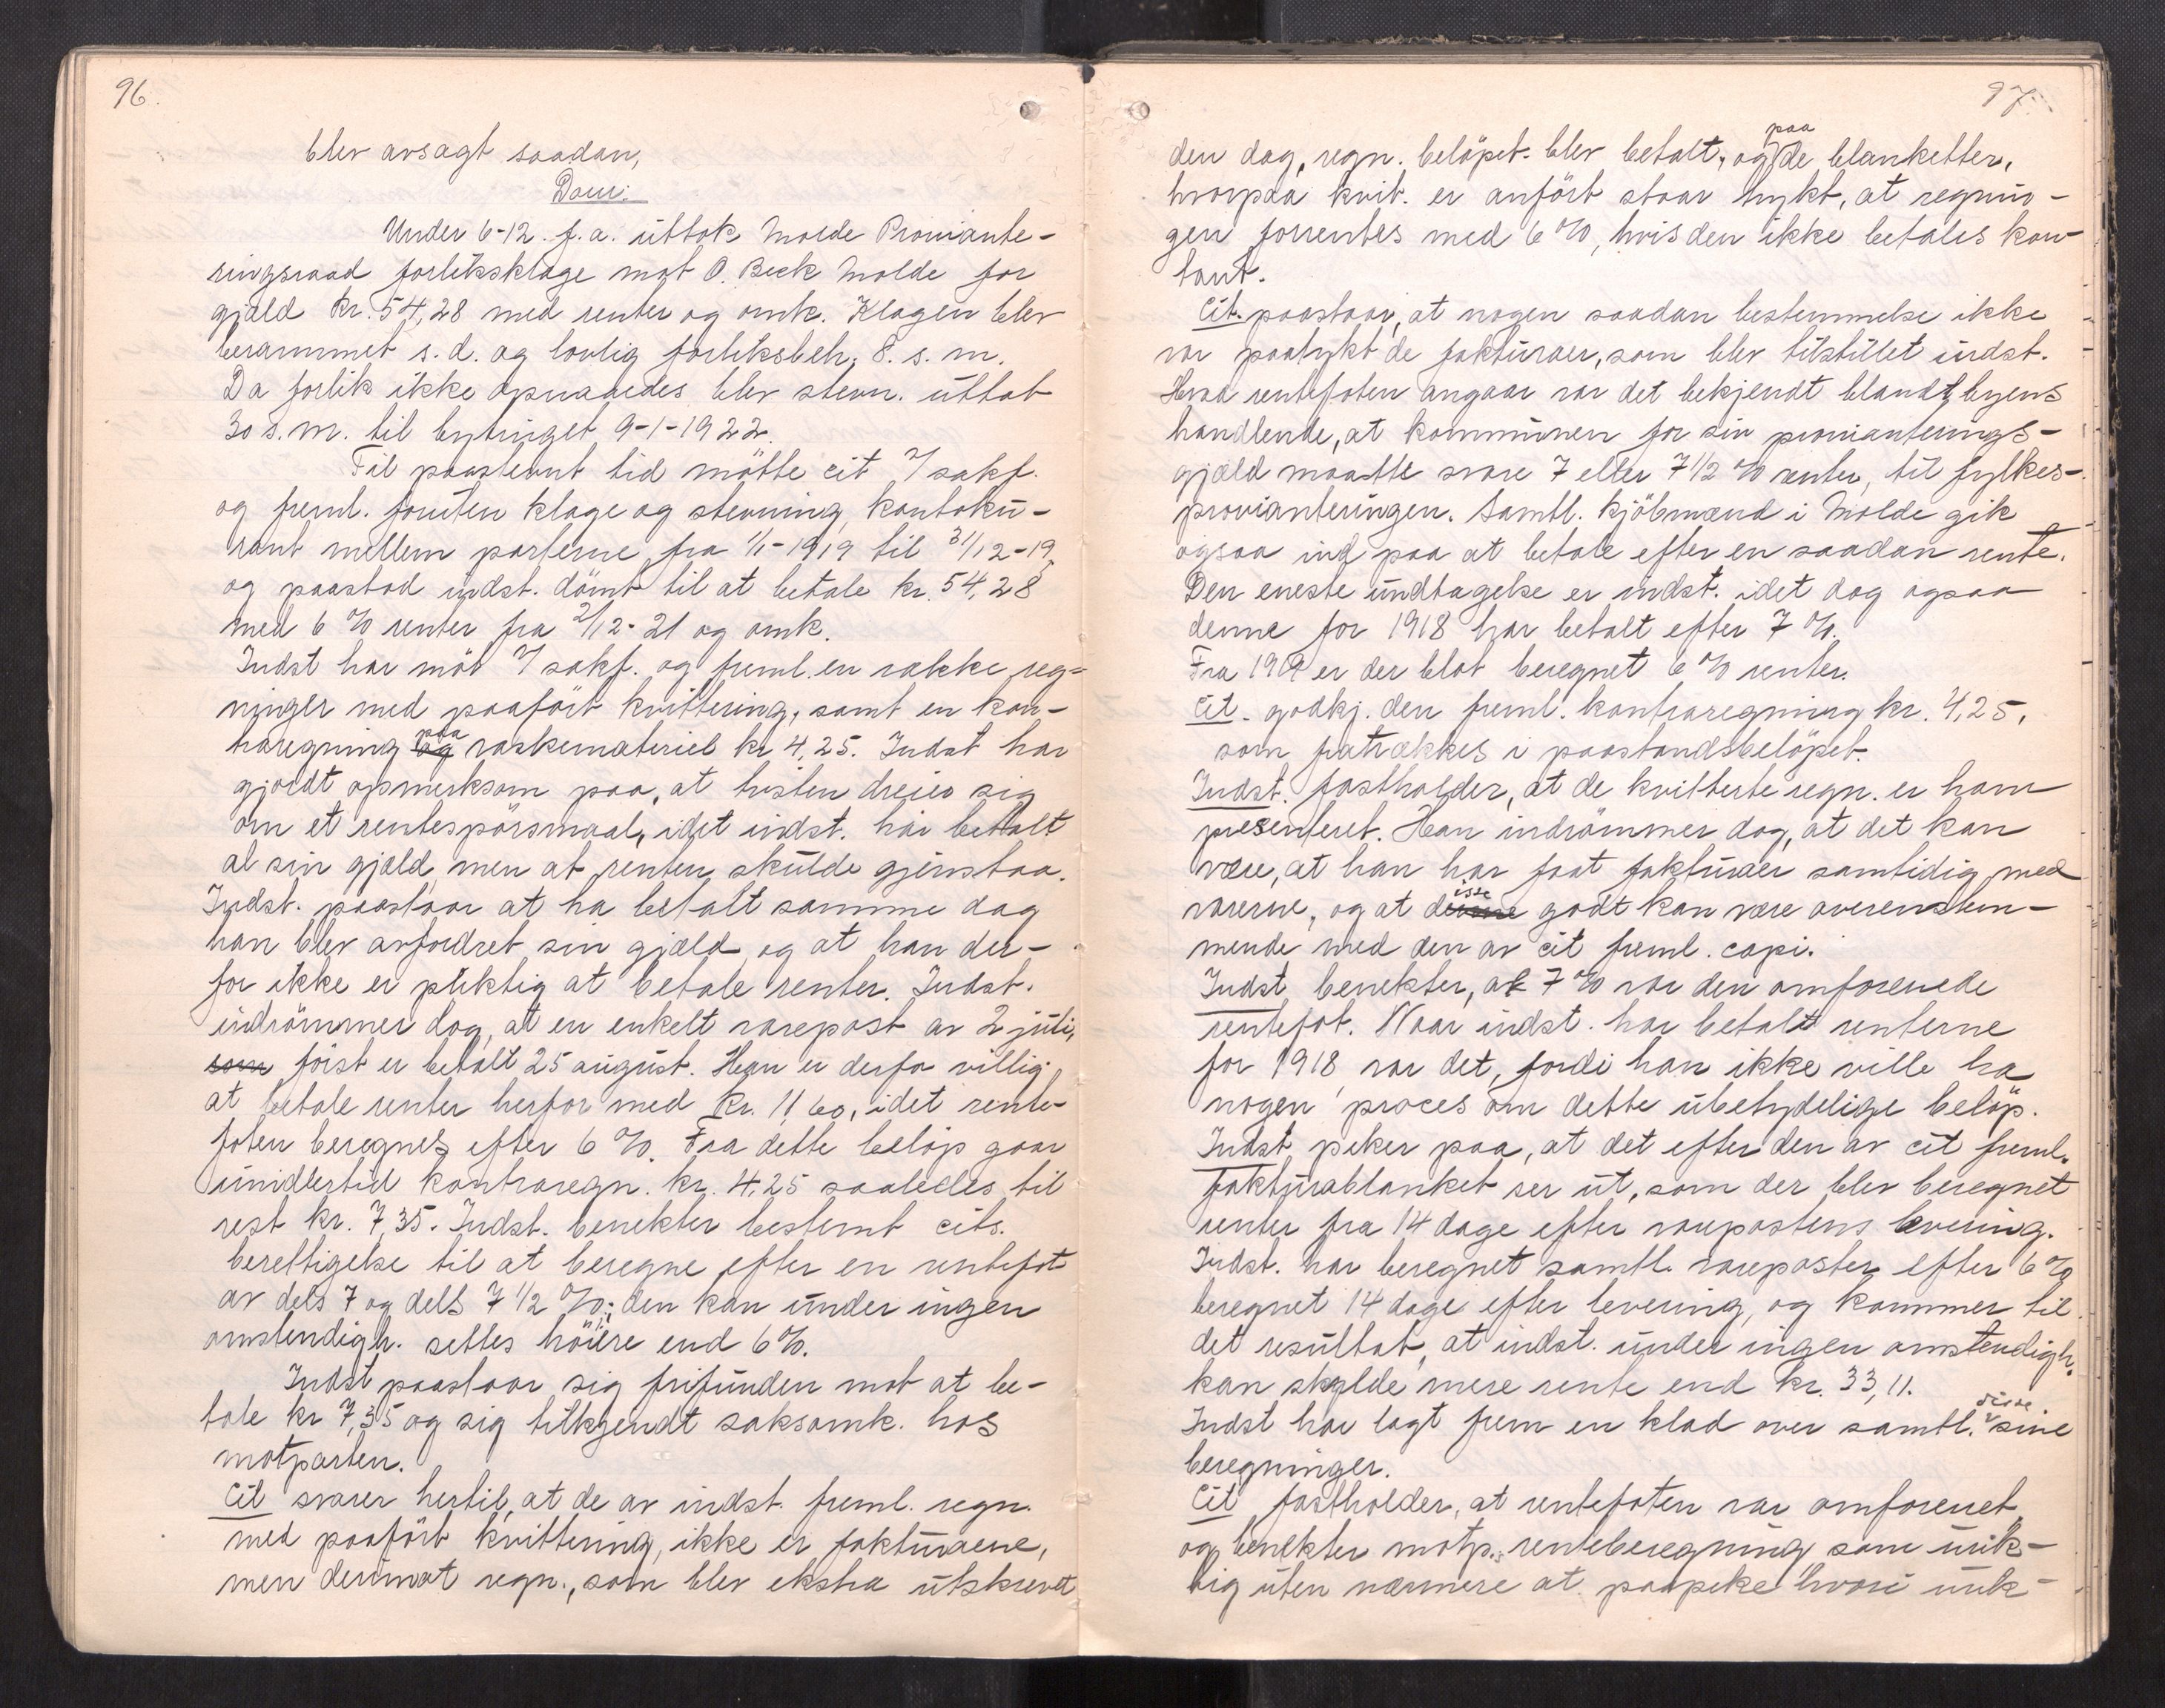 96.
blev avsagt saadan,
Dom:
Under 6-12. f.a. uttok Molde Proviante-
ringsraad forliksklage mot O. Beck Molde for
gjæld kr. 54,28 med renter og omk. Klagen blev
berammet s.d. og lovlig forliksbeh. 8. s. m.
Da forlik ikke opnaaedes blev stevn. uttat
30 s.m. til bytinget 9-1-1922.
Til paastevnt tid mötte cit v/ sakf.
og freml. foruten klage og stevning, kontoku-
rant mellem parterne fra 1/1-1919 til 31/12-19,
og paastod indst. dömt til at betale kr. 54,28
med 6 % renter fra 2/12-21 og omk.
Indst har möt v/ sakf. og freml. en række reg-
ninger med paafört kvittering, samt en kon-
traregning og paa vaskemateriel kr 4,25. Indst har
gjordt opmerksom paa, at tvisten dreier sig
om et rentespörsmaal, idet indst. har betalt
al sin gjæld, men at renten skulde gjenstaa.
Indst. paastaar at ha betalt samme dag
han blev avfordret sin gjæld, og at han der-
for ikke er pliktig at betale renter. Indst.
indrömmer dog, at en enkelt varepost av 2 juli,
som först er betalt 25 august. Han er derfor villig
at betale renter herfor med kr. 11,60, idet rente-
foten beregnes efter 6 %. Fra dette belöp gaar
imidlertid kontraregn. kr. 4,25 saaledes til
rest kr. 7,35. Indst. benekter bestemt cits.
berettigelse til at beregne efter en rentefot
av dels 7 og dels 7 1/2 %; den kan under ingen
omstendigh. settes höiere end 6 %.
Indst paastaar sig frifunden mot at be-
tale kr 7,35 og sig tilkjendt saksomk. hos
motparten.
Cit svarer hertil, at de av indst. freml. regn.
med paafört kvittering, ikke er fakturaene,
men derimot regn., som blev ekstra utskrevet
97.
den dag, regn. belöpet blev betalt, og paa de blanketter,
hvorpaa kvit. er anfört staar trykt, at regnin-
gen forrentes med 6 %, hvis den ikke betales kon-
tant.
Cit. paastaar, at nogen saadan bestemmelse ikke
var paatrykt de fakturaer, som blev tilstillet indst.
Hvad rentefoten angaar var det bekjendt blandt byens
handlende, at kommunen for sin provianterings-
gjæld maatte svare 7 eller 7 1/2 % renter, til fylkes-
provianteringen. Samtl. kjöbmænd i Molde gik
ogsaa ind paa at betale efter en saadan rente.
Den eneste undtagelse er indst. idet dog ogsaa
denne for 1918 har betalt efter 7 %.
Fra 1919 er der blot beregnet 6 % renter.
Cit. godkj. den freml. kontraregning kr. 4,25,
som fratrækkes i paastandsbelöpet.
Indst. fastholder, at de kvitterte regn. er ham
presenteret. Han indrömmer dog, at det kan
være, at han har faat fakturaer samtidig med
varerne, og at disse godt kan være overenstem-
mende med den av cit freml. copi.
Indst benekter, at 7 % var den omforenede
rentefot. Naar indst. har betalt renterne
for 1918, var det, fordi han ikke ville ha
nogen proces om dette ubetydelige belöp.
Indst peker paa, at det efter den av cit freml.
fakturablanket ser ut, som der blev beregnet
renter fra 14 dage efter varepostens levering.
Indst. har beregnet samtl. vareposter efter 6 %
beregnet 14 dage efter levering, og kommer til
det resultat, at indst. under ingen omstendigh.
kan skylde mere rente end kr. 33,11.
Indst har lagt frem en klad over samtl. disse sine
beregninger.
Cit fastholder, at rentefoten var omforenet,
og benekter motp. renteberegning som urik-
tig uten nærmere at paapeke hvori urik-